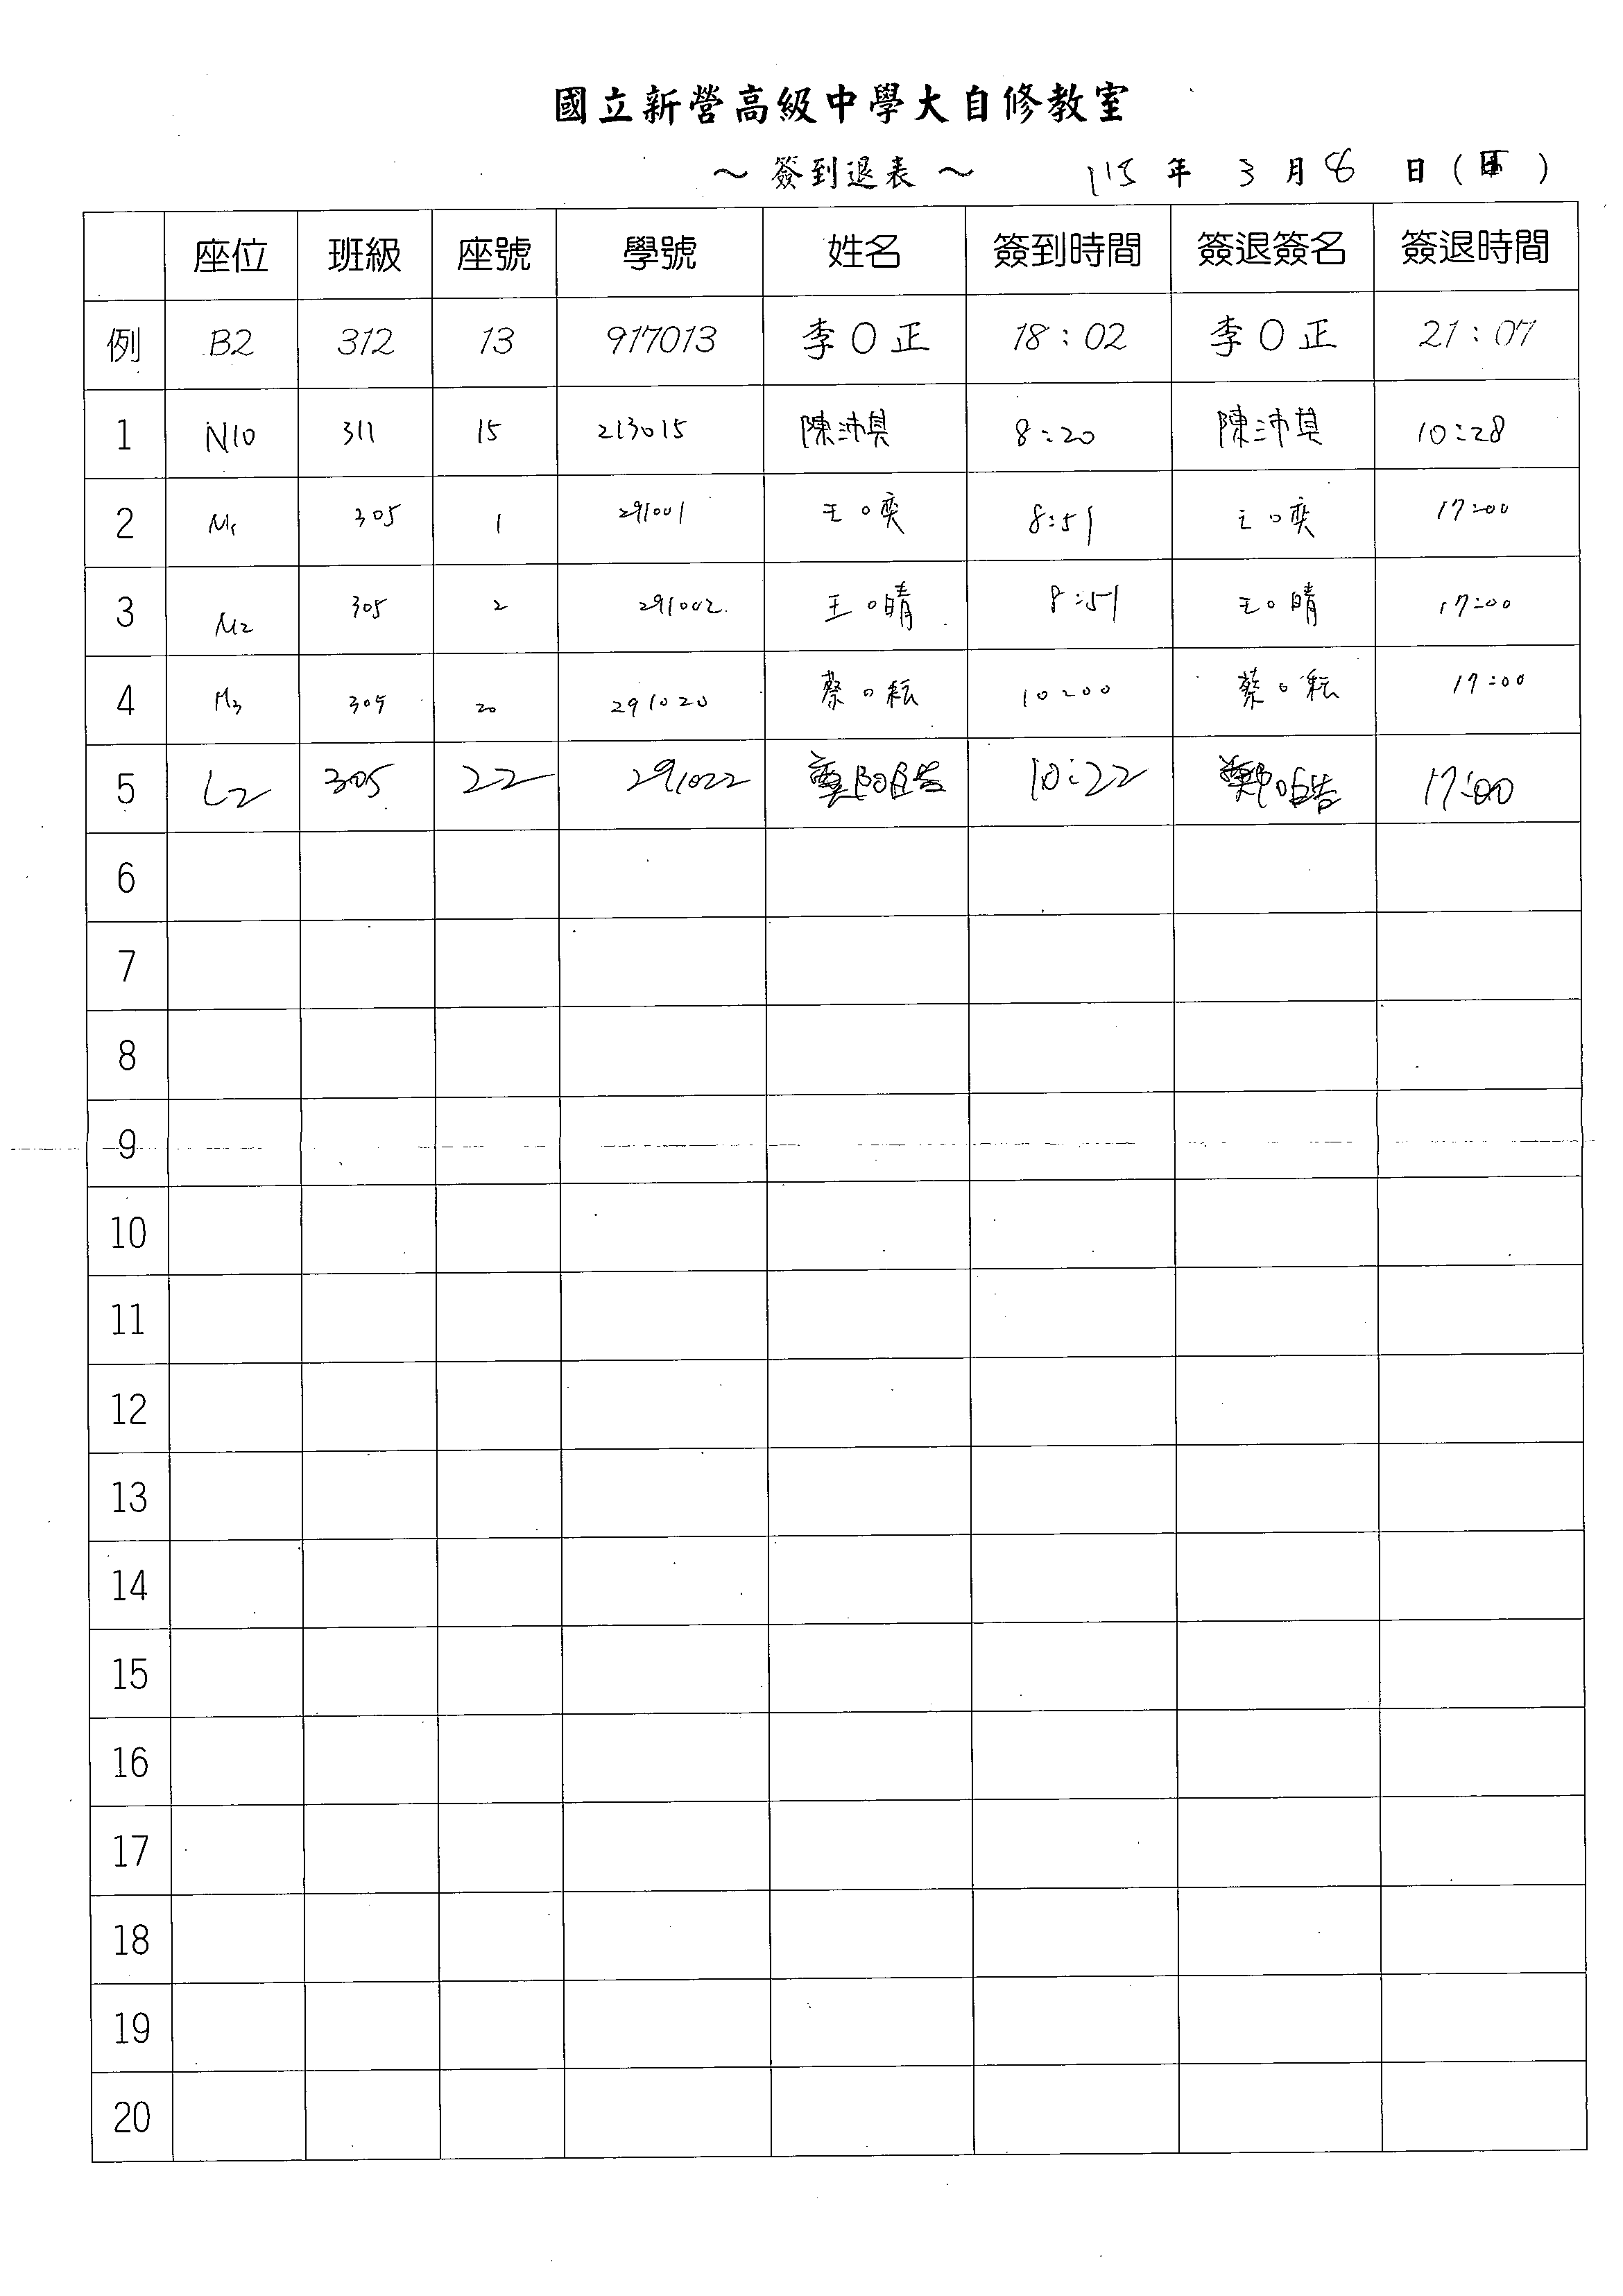 國立新營高級中學大自修教室
～簽到退表～ 115 年 3 月 8 日 ( )
座位 班級 座號 學號 姓名 簽到時間 簽退簽名 簽退時間
例 B2 312 13 917013 李O正 18:02 李O正 21:07
1 N10 311 15 213015 陳沛淇 8:20 陳沛淇 10:28
2 M1 305 1 291001 王O奕 8:51 王O奕 17:00
3 M2 305 2 291002 王O晴 8:51 王O晴 17:00
4 M3 305 20 291020 蔡O耘 10:00 蔡O耘 17:00
5 L2 305 22 291022 鄭O皓 10:22 鄭O皓 17:00
6
7
8
9
10
11
12
13
14
15
16
17
18
19
20